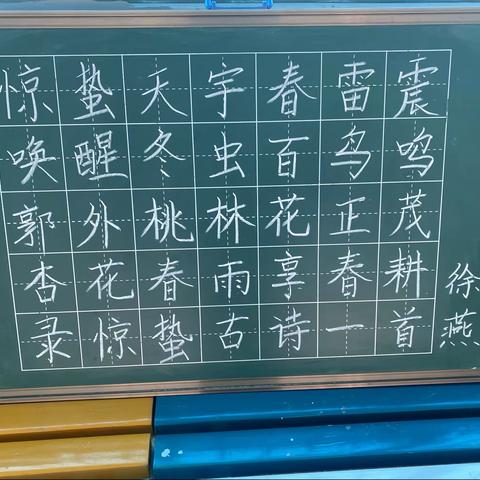 惊蛰天宇春雷震
唤醒冬虫百鸟鸣
郭外桃林花正茂
杏花春雨享春耕
录惊蛰古诗一首
徐燕